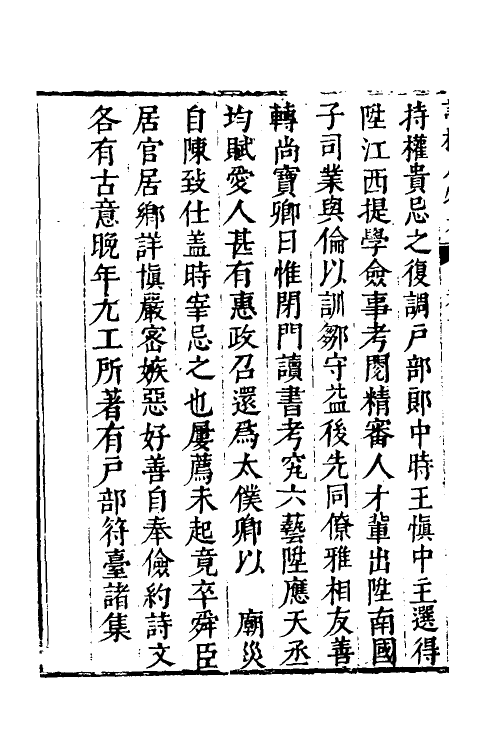 持權貴忌之復調戸部郎中時王愼中主選得
陞江西提學僉事考閱精審人才輩出陞南國
子司業與倫以訓鄒守益後先同僚雅相友善
轉尚寶卿日惟閉門讀書考究六藝陞應天丞
均賦愛人甚有惠政召還爲太僕卿以　廟災
自陳致仕盖時宰忌之也屢薦未起竟卒舜臣
居官居鄉詳愼嚴密嫉惡好善自奉儉約詩文
各有古意晚年尤工所著有戸部符臺諸集